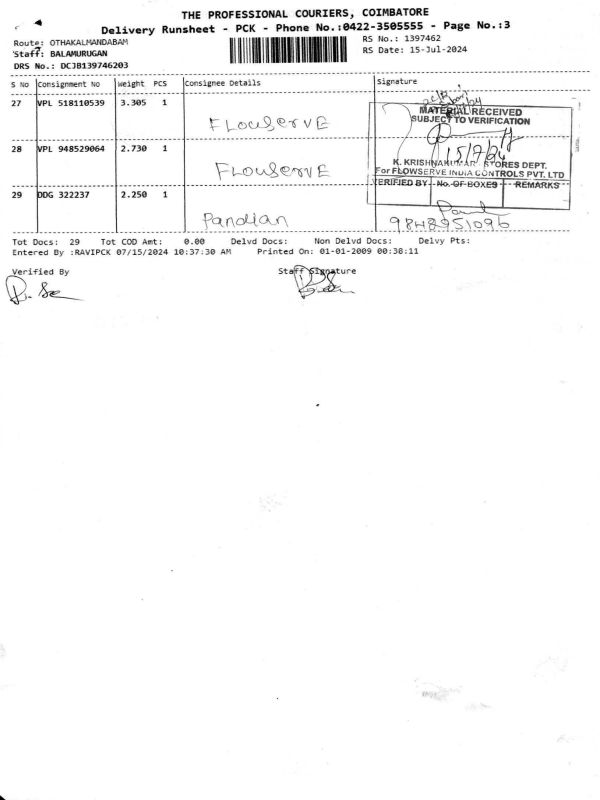 THE PROFESSIONAL COURIERS, COIMBATORE
Delivery Runsheet - PCK - Phone No.:0422-3505555 - Page No.:3
Route: OTHAKALMANDABAM RS No.: 1397462
Staff: BALAMURUGAN RS Date: 15-Jul-2024
DRS No.: DCJB139746203
S No Consignment No Weight PCS Consignee Details Signature
27 VPL 518110539 3.305 1 FLOWSERVE
MATERIAL RECEIVED
SUBJECT TO VERIFICATION
15/7/24
28 VPL 948529064 2.730 1 FLOWSERVE
K. KRISHNAKUMAR STORES DEPT.
For FLOWSERVE INDIA CONTROLS PVT. LTD
VERIFIED BY No. OF BOXES REMARKS
29 DDG 322237 2.250 1 Pandian 9848951096
Tot Docs: 29 Tot COD Amt: 0.00 Delvd Docs: Non Delvd Docs: Delvy Pts:
Entered By :RAVIPCK 07/15/2024 10:37:30 AM Printed On: 01-01-2009 00:38:11
Verified By Staff Signature